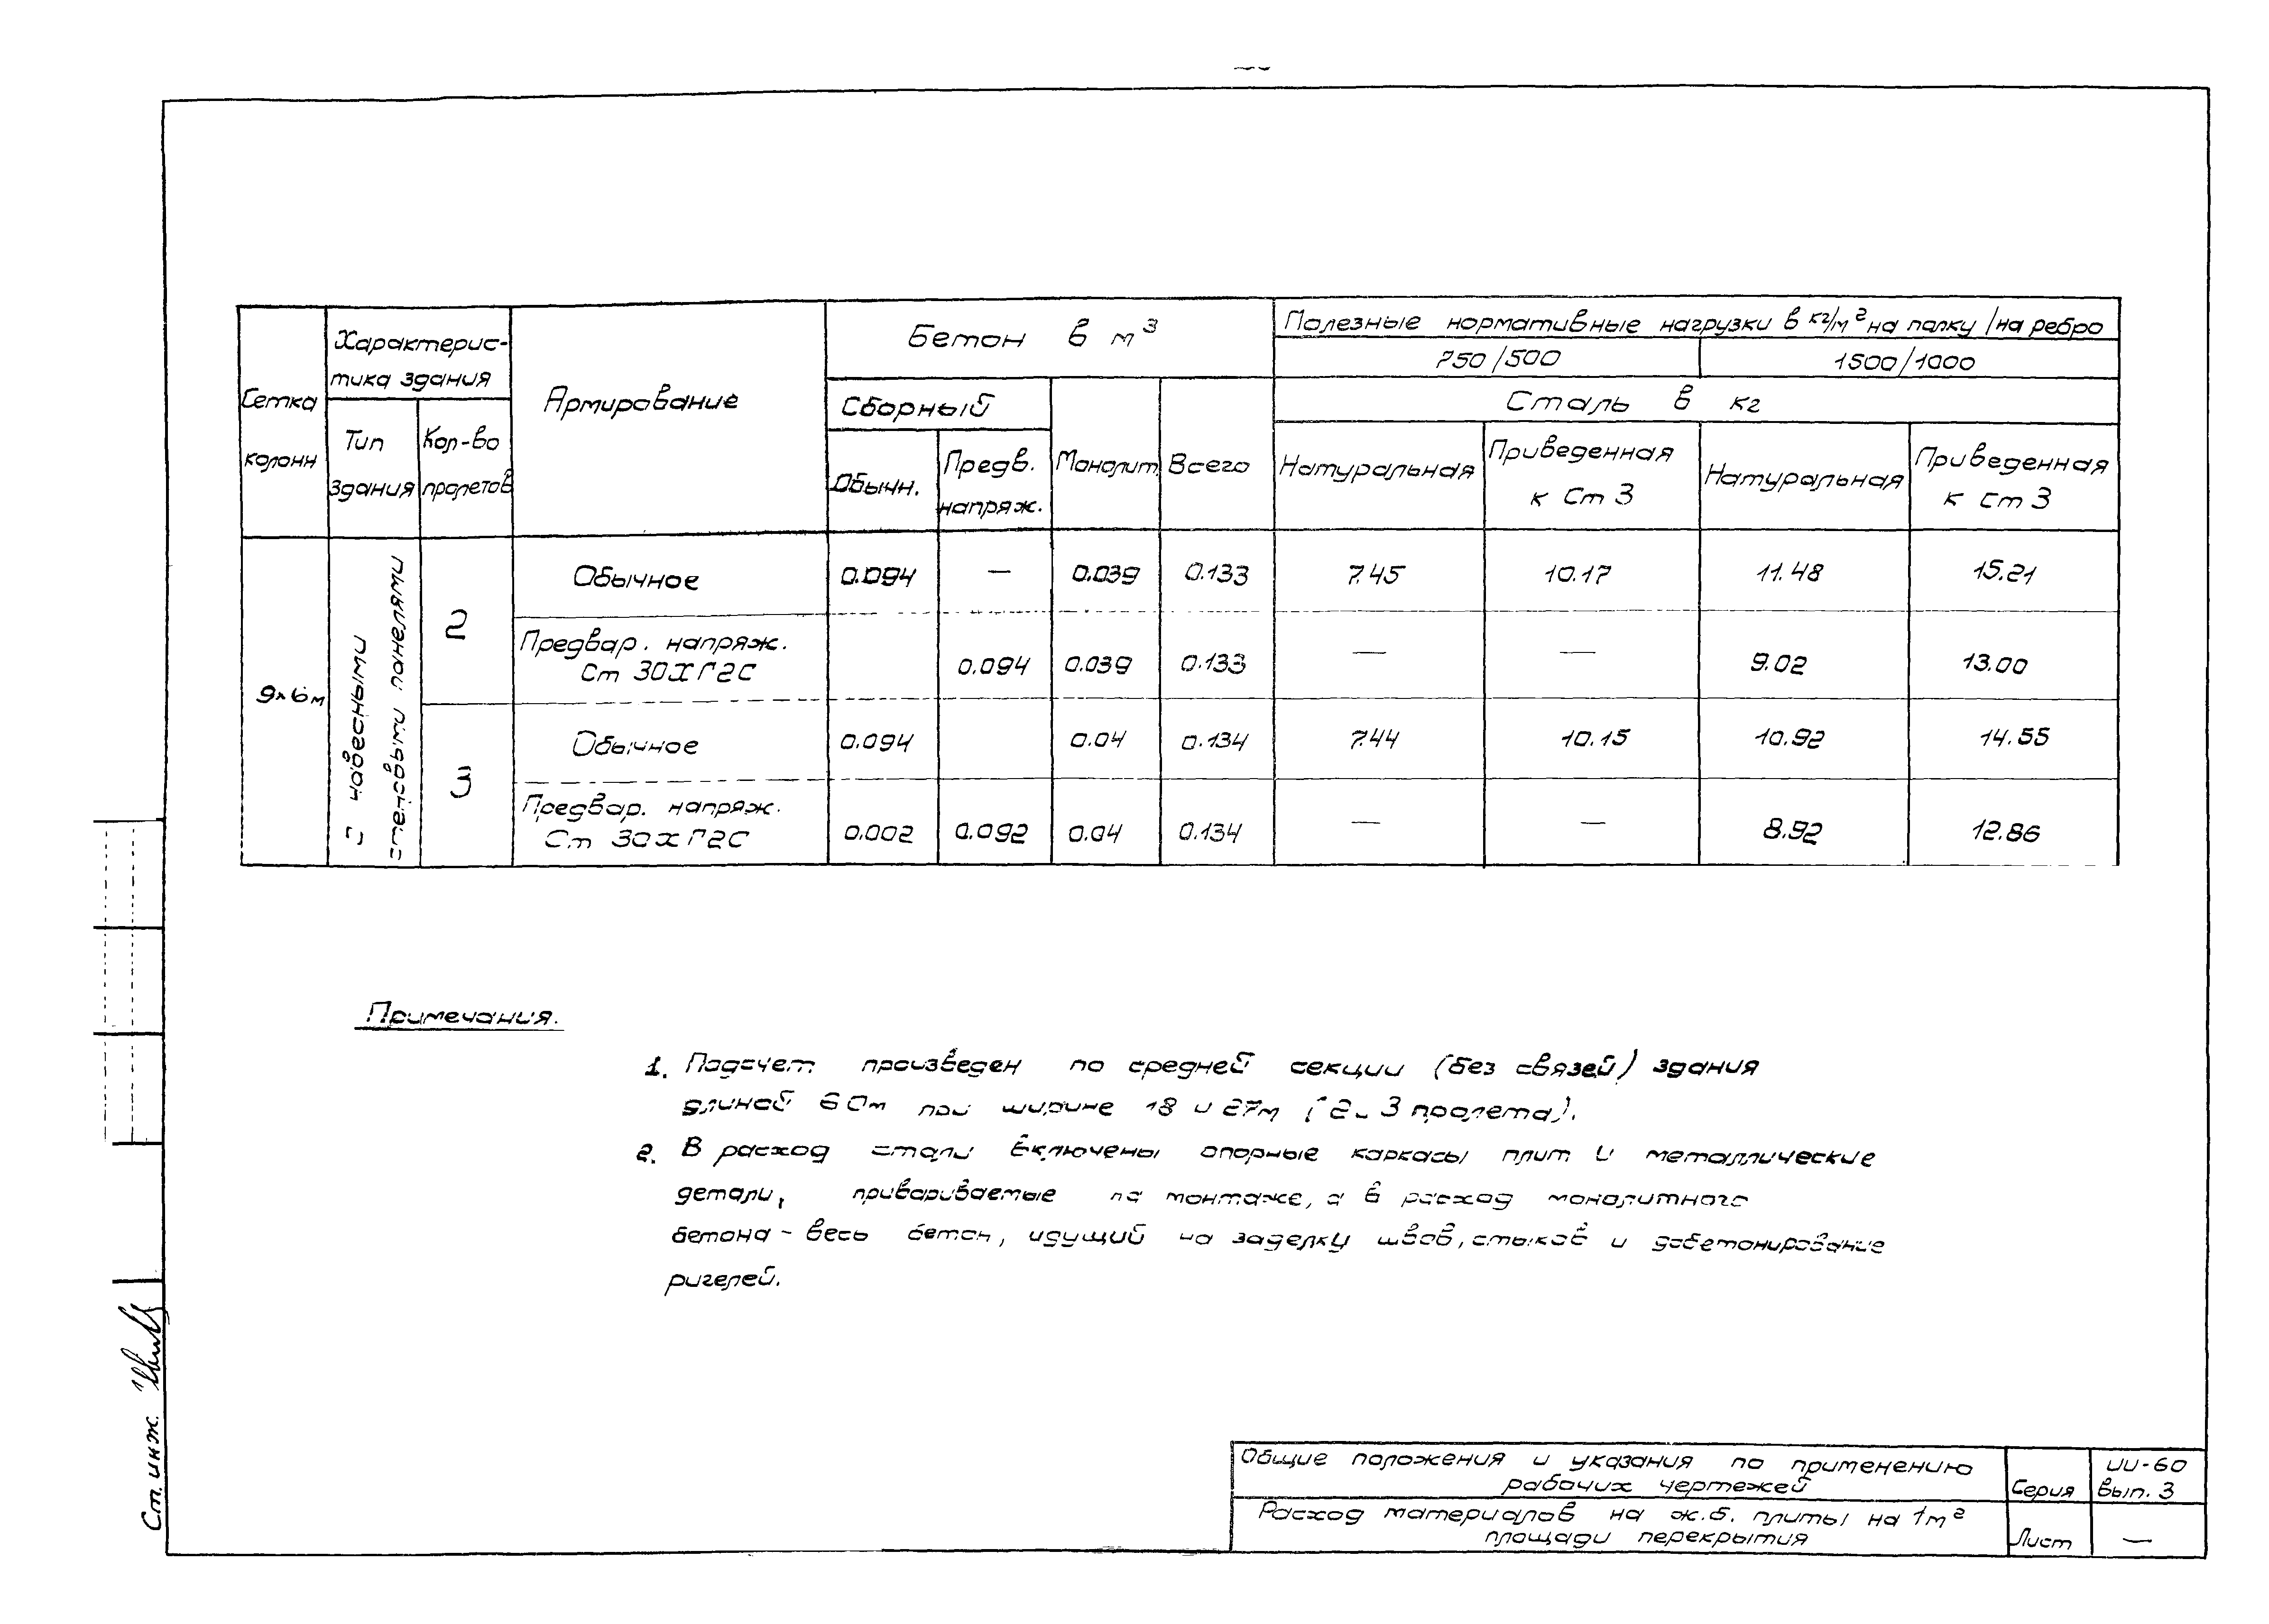 Сетка
колонн
Характерис-
тика здания
Тип
здания
Кол-во
пролетов
Армирование
Бетон в м³
Сборный
Обычн.
Предв.
напряж.
Монолит.
Всего
Полезные нормативные нагрузки в кг/м² на полку / на ребро
750/500
1500/1000
Сталь в кг
Натуральная
Приведенная
к Ст 3
Натуральная
Приведенная
к Ст 3
9×6м
С навесными
стеновыми панелями
2
Обычное 0.094 — 0.039 0.133 7.45 10.17 11.48 15.21
Предвар. напряж.
Ст 30ХГ2С 0.094 0.039 0.133 — — 9.02 13.00
3
Обычное 0.094 0.04 0.134 7.44 10.15 10.92 14.55
Предвар. напряж.
Ст 30ХГ2С 0.002 0.092 0.04 0.134 — — 8.92 12.86
Примечания.
1. Подсчет произведен по средней секции (без связей) здания
длиной 60м при ширине 18 и 27м (2 и 3 пролета).
2. В расход стали включены опорные каркасы плит и металлические
детали, привариваемые на монтаже, а в расход монолитного
бетона - весь бетон, идущий на заделку швов, стыков и добетонирование
ригелей.
Ст. инж.
Общие положения и указания по применению
рабочих чертежей
Серия
ИИ-60
Вып. 3
Расход материалов на ж.б. плиты на 1м²
площади перекрытия
Лист —